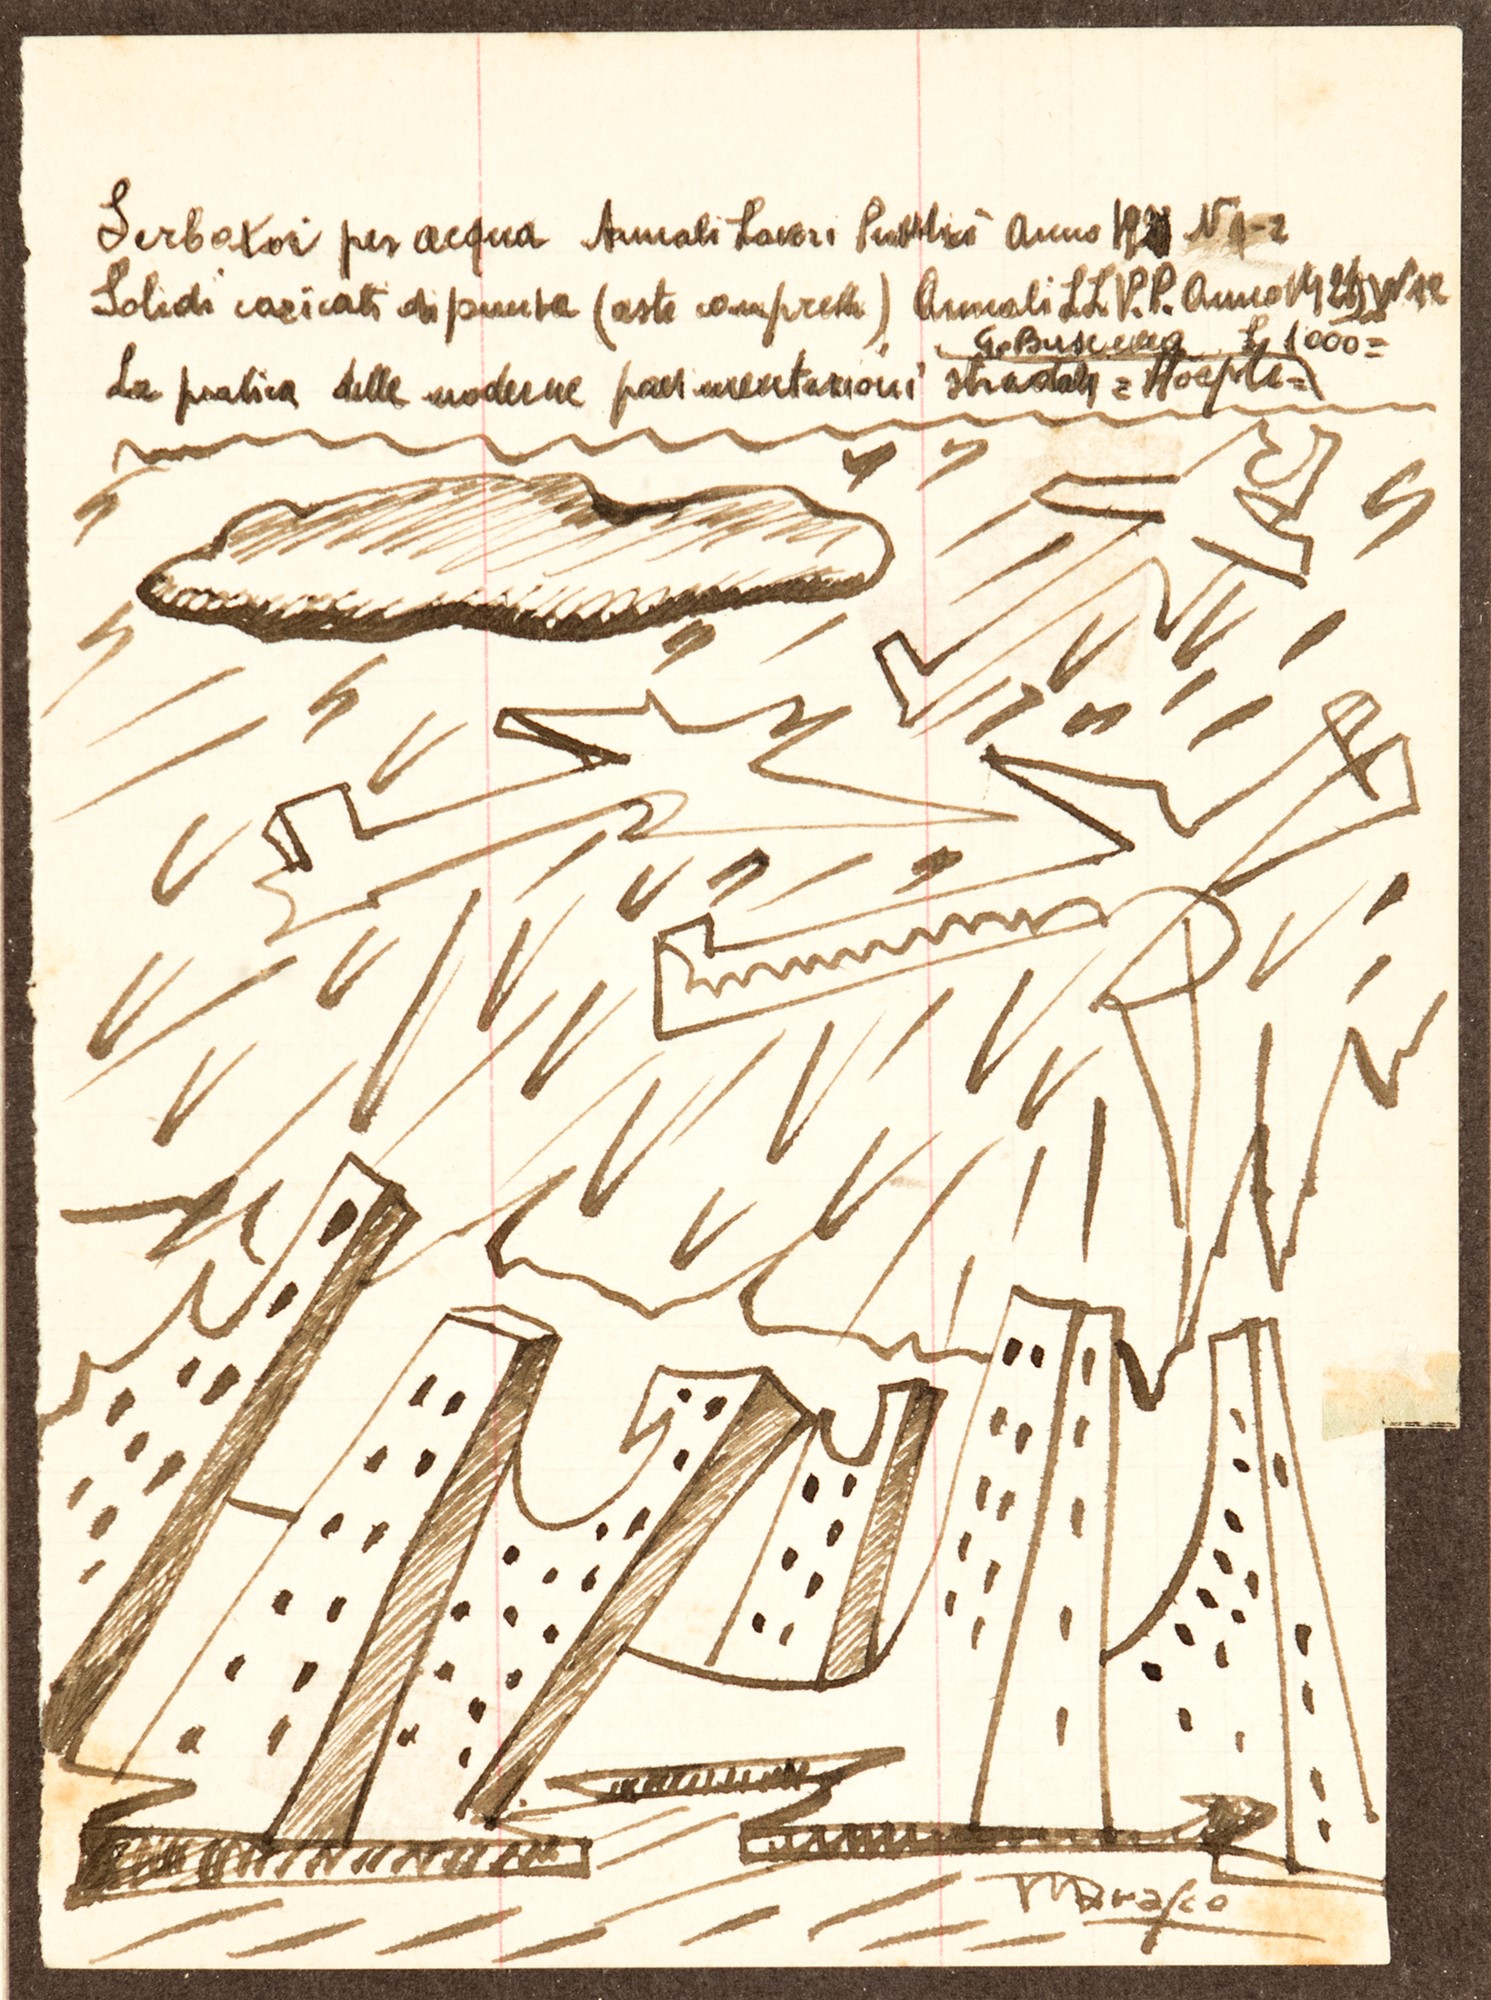 Serbatoi per acqua Annali Lavori Pubblici Anno 192 N 1-2
Solidi caricati di punta (aste compresse) Annali LL.P.P. Anno 192 N 12
G. Buscemi L 1000=
La pratica delle moderne pavimentazioni stradali = Hoepli =
Marasco